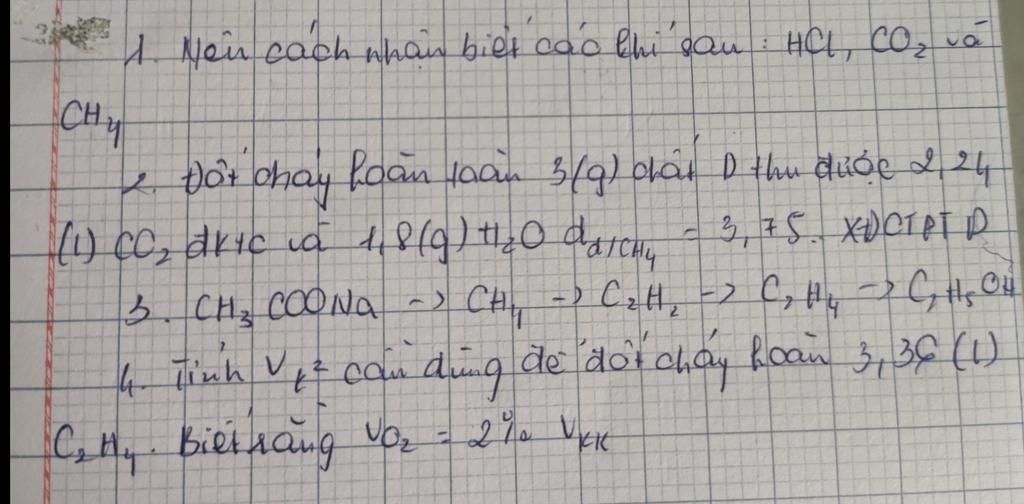 1. Nêu cách nhận biết các khí sau: HCl, CO2 và
CH4
2. Đốt cháy hoàn toàn 3(g) chất D thu được 2,24
(l) CO2 đktc và 1,8(g) H2O d d/CH4 = 3,75. XĐCTPT D
3. CH3COONa -> CH4 -> C2H2 -> C2H4 -> C2H5OH
4. Tính V cần dùng để đốt cháy hoàn 3,36 (l)
C2H4. Biết rằng VO2 = 2% VKK